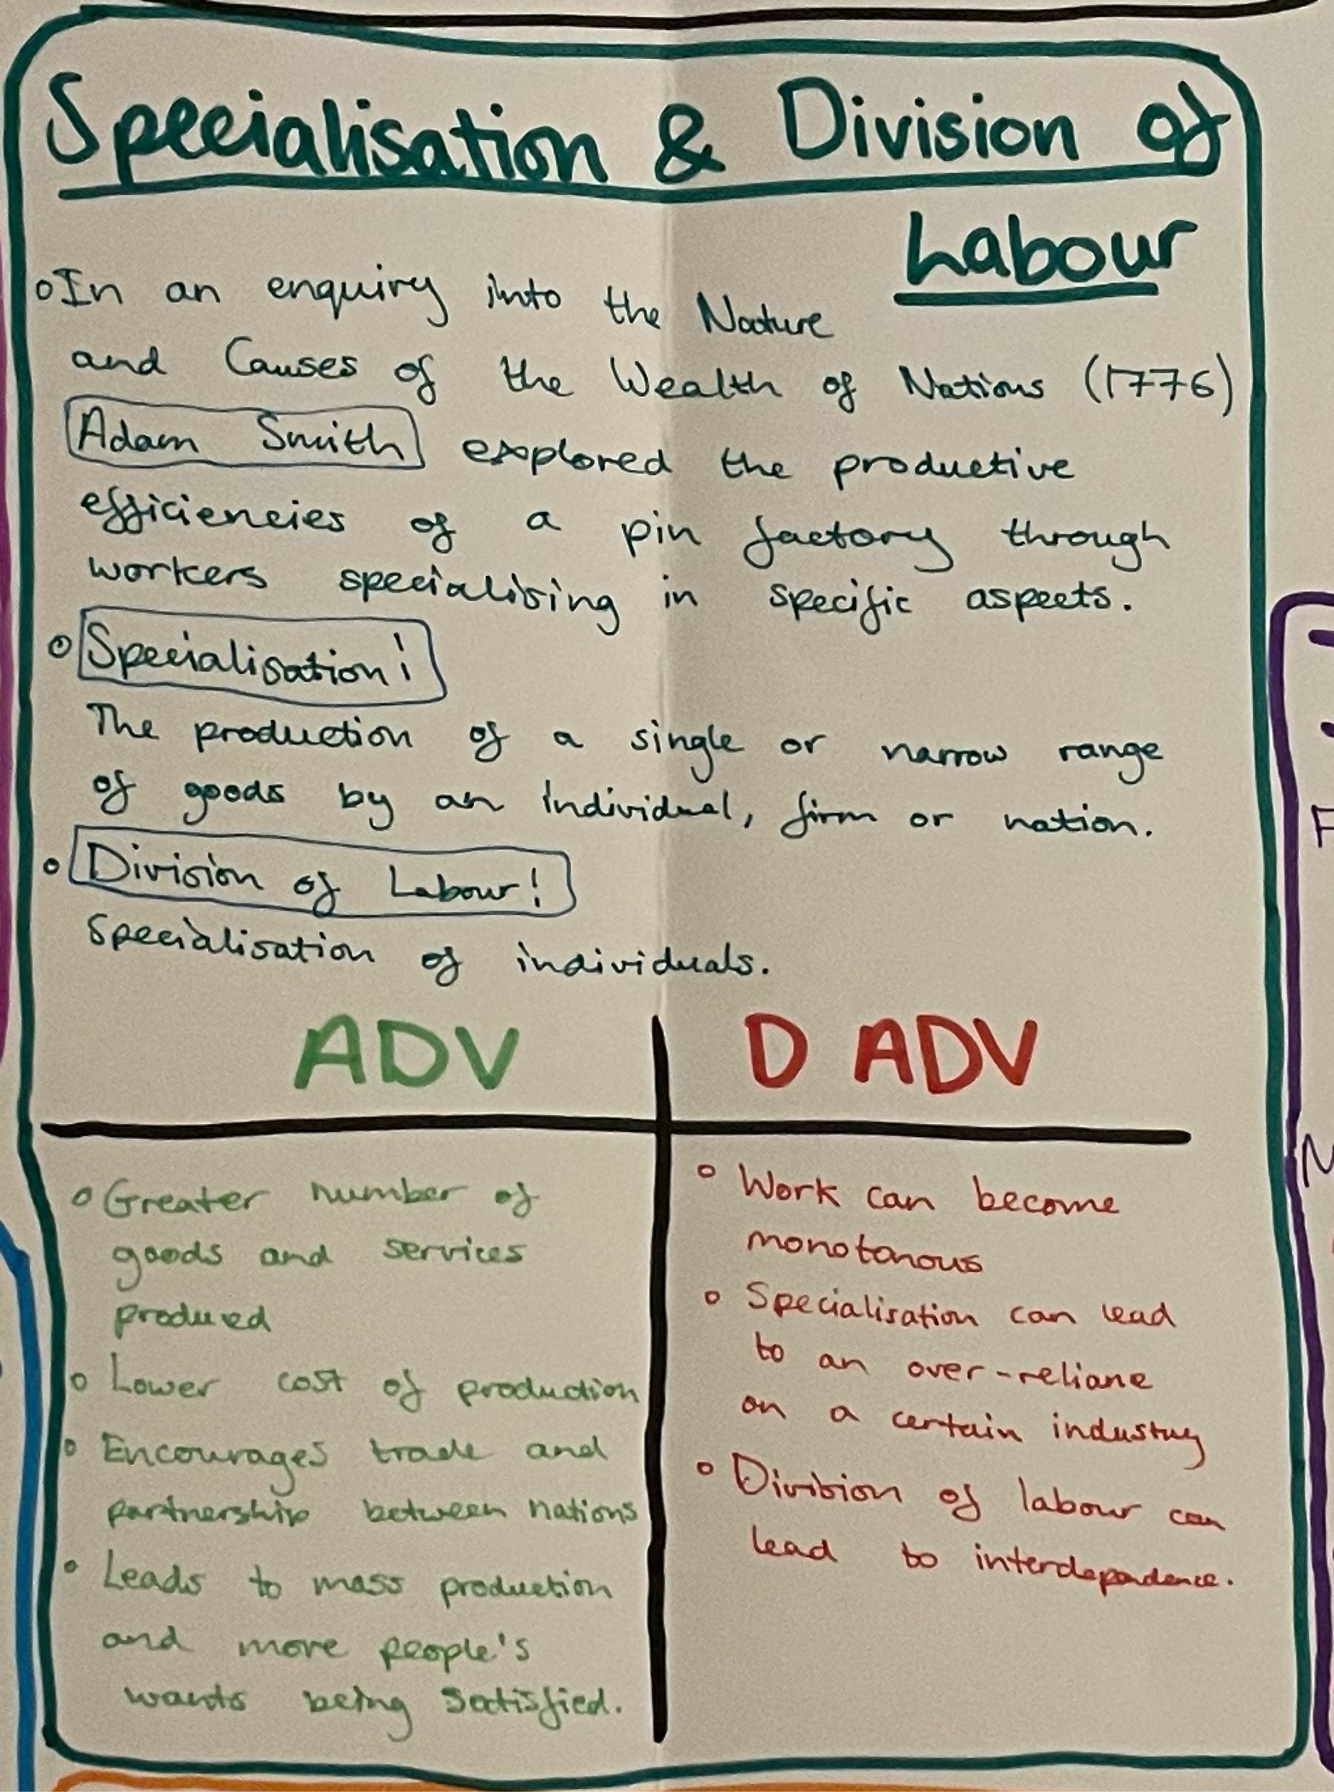 Specialisation & Division of
Labour
In an enquiry into the Nature
and Causes of the Wealth of Nations (1776)
Adam Smith explored the productive
efficiencies of a pin factory through
workers specialising in specific aspects.
Specialisation!
The production of a single or narrow range
of goods by an individual, firm or nation.
Division of Labour!
Specialisation of individuals.
ADV
D ADV
Greater number of
goods and services
produced
Lower cost of production
Encourages trade and
partnership between nations
Leads to mass production
and more people's
wants being satisfied.
Work can become
monotonous
Specialisation can lead
to an over-reliance
on a certain industry
Division of labour can
lead to interdependence.